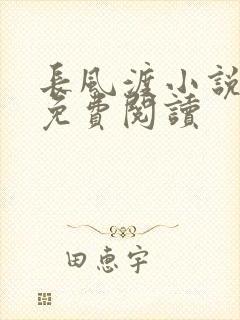 長風渡小說
免費閱讀
田惠宇